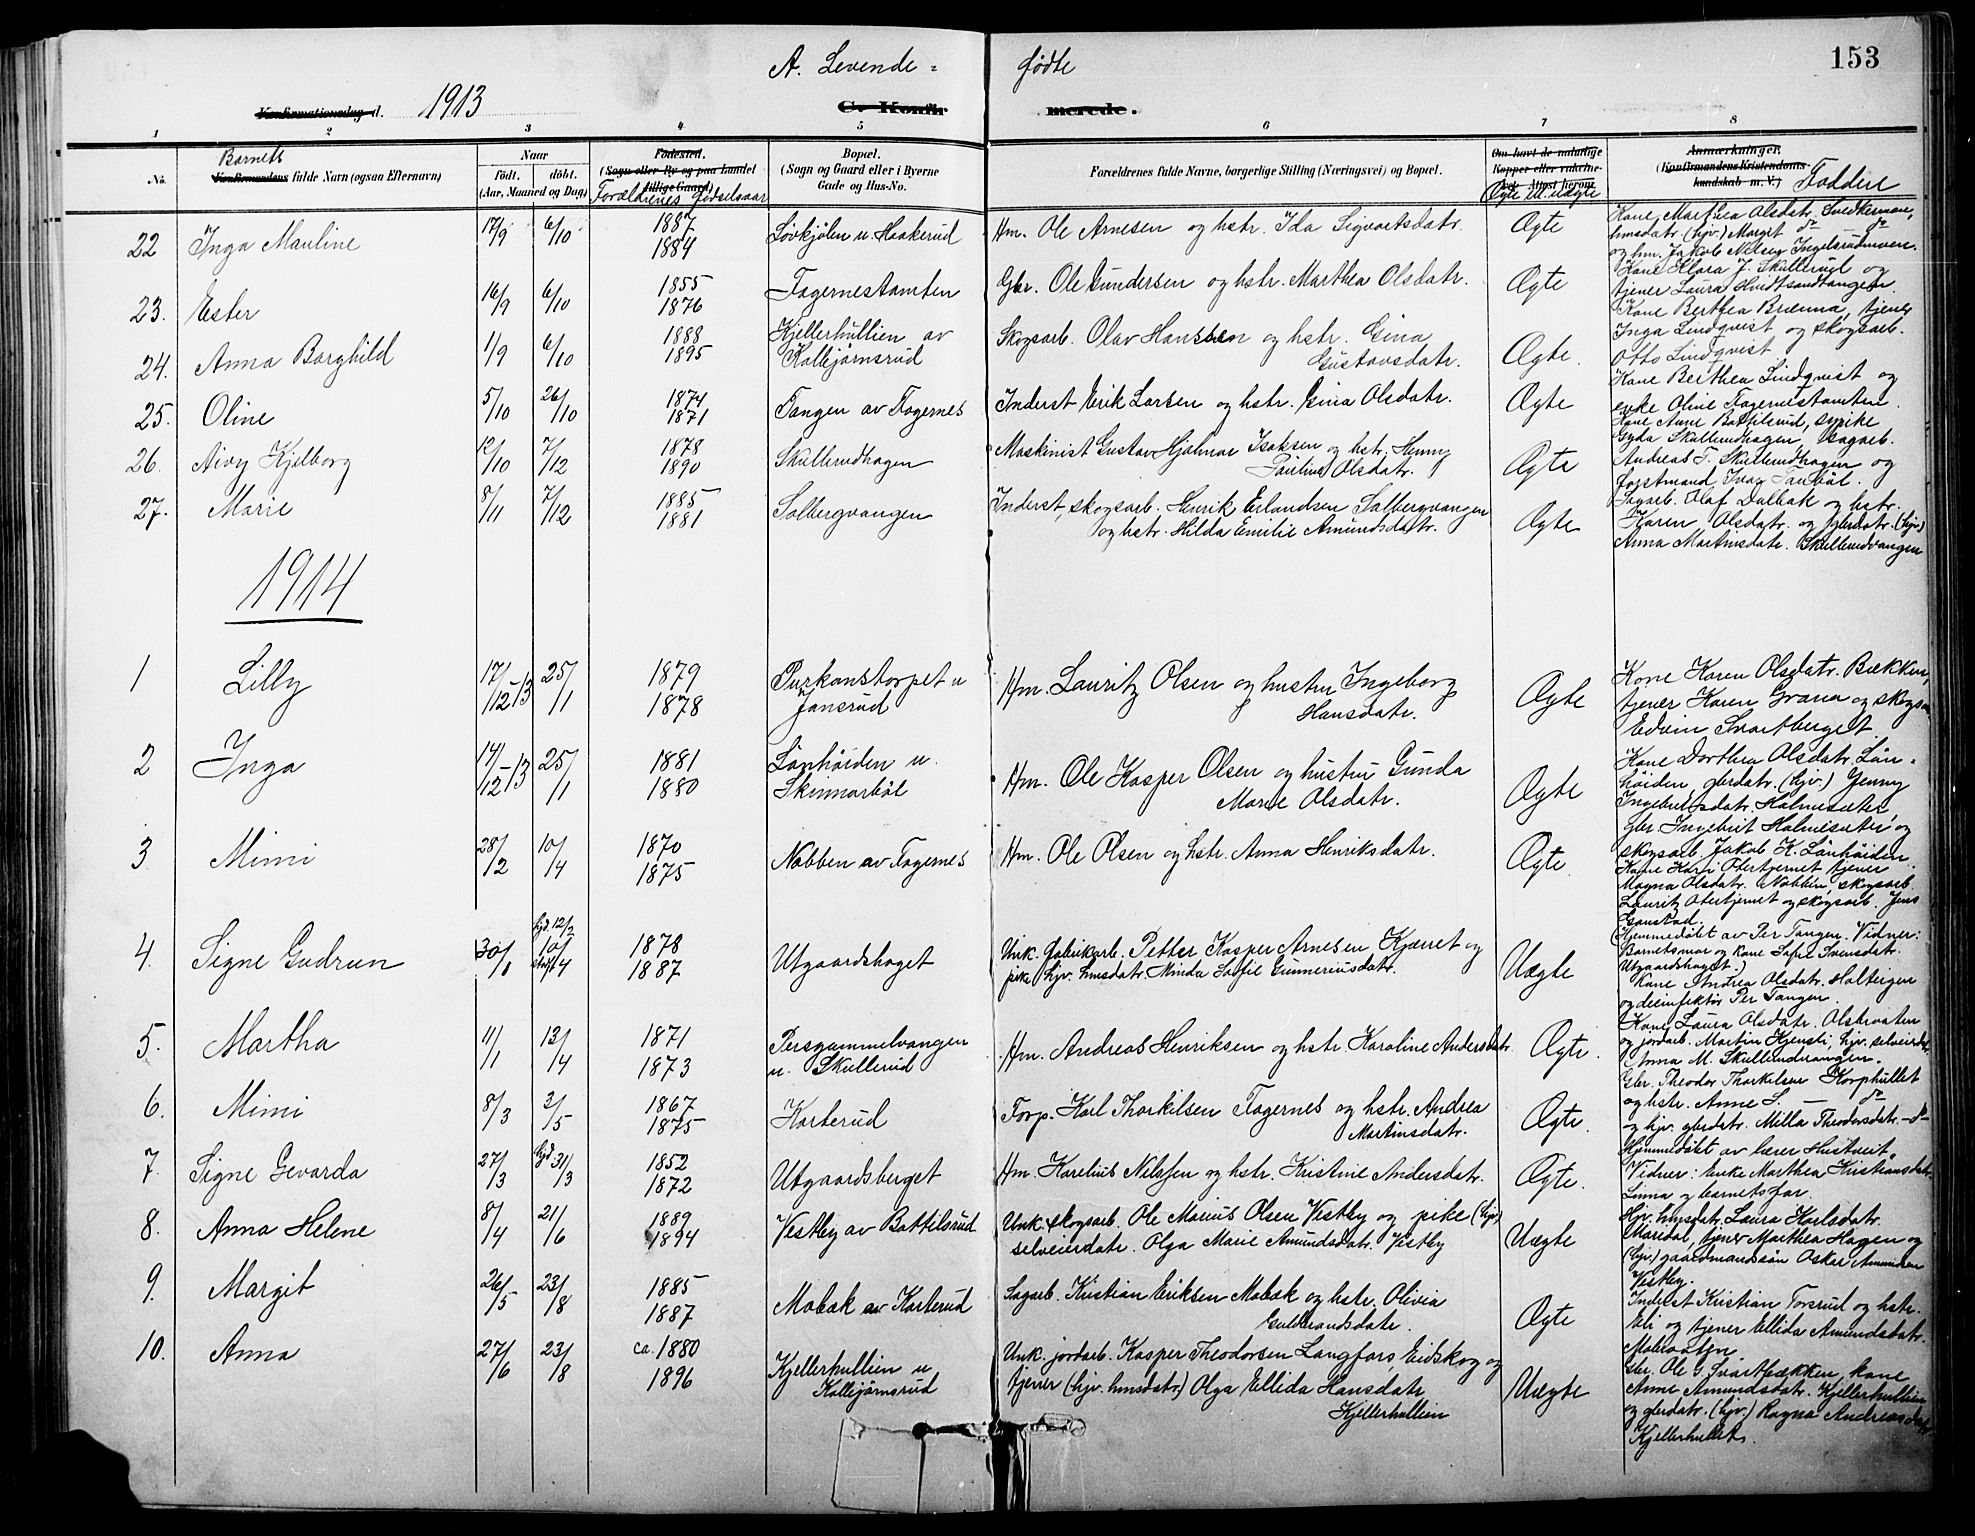 153
A. Levende = fødte
Konfirmationsdag d. 1913
C. Konfirmerede.
1 2 3 4 5 6 7 8
No.
Barnets
Konfirmandens fulde Navn (ogsaa Efternavn)
Naar
Født. döbt.
(Aar, Maaned og Dag)
Fødested.
(Sogn eller By og paa Landet
tillige Gaard)
Forældrenes fødselsaar
Bopæl.
(Sogn og Gaard eller i Byerne
Gade og Hus-No.
Forældrenes fulde Navne, borgerlige Stilling (Næringsvei) og Bopæl.
Om havt de naturlige
Kopper eller vaksine-
Ægte ell. uægte
Anmærkninger.
(Konfirmandens Kristendoms-
kundskab m. V.)
Faddere
22 Inga Mauline 17/9 6/10 1887 1884 Løvkjölen u. Haakerud Hm. Ole Arnesen og hstr. Ida Sigvartsdatr. Ægte
Kone Marthea Olsdatr. Snedkermoen,
hmsdatr. (hjv.) Margit do
og hm. Jakob Nilsen Ingelsrudmoen.
23. Ester 16/9 6/10 1855 1876 Fagernestomten Gbr. Ole Gundersen og hstr. Marthea Olsdatr. Ægte
Kone Klara J. Skullerud og
tjener Laura Hvidtsandtangen
24. Anna Borghild 1/9 6/10 1888 1895 Kjellerhullien av
Kolbjörnsrud
Skogsarb. Olav Hanssen og hstr. Gina
Gustavsdatr. Ægte.
Kone Berthea Brænna, tjener
Inga Lindqvist og skogsarb.
Otto Lindqvist
25. Oline 5/10 26/10 1874 1871 Tangen av Fagernes Inderst Erik Larsen og hstr. Gina Olsdatr. Ægte
Kone Berthea Lindqvist og
enke Oline Fagernestomten
26. Aivy Kjelborg 12/10 7/12 1878 1890 Skullerudhagen Maskinist Gustav Hjalmar Isaksen og hstr. Henny
Pauline Olsdatr. Ægte
Kone Anne Bottilsrud, syrike
Gyda Skullerudhagen, sagarb.
Andreas T. Skullerudhagen og
forstmand Ivar Tauböl.
27. Marie 8/11 7/12 1885 1881 Solbergvangen Inderst, skogsarb. Henrik Erlandsen Solbergvangen
og hstr. Hilda Emilie Amundsdatr. Ægte
Sagarb. Olaf Dalbak og hstr.
Karen Olsdatr. og gbrdatr. (hjv.)
Anna Martinsdatr. Skullerudvangen
1914
1 Lilly 17/12-13 25/1 1879 1878 Purkanstorpet u
Jansrud
Hm. Lauritz Olsen og hustru Ingeborg
Hansdatr. Ægte
Kone Karen Olsdatr. Bækken,
tjener Karen Grana og skogsa
Edvin Svartberget
2 Inga 14/12-13 25/1 1881 1880 Lönhöiden u.
Skinnarböl
Hm. Ole Kasper Olsen og hustru Gunda
Marie Olsdatr. Ægte
Kone Dorthea Olsdatr. Lön-
höiden, gbrdatr. (hjv.) Jenny
Ingebretsdatr. Holmesæter
Gbr. Ingebrit Holmesæter og
skogsarb. Jakob K. Lönhöiden.
3 Mimi 28/2 10/4 1870 1875 Nabben av Fagernes Hm. Ole Olsen og hstr. Anna Henriksdatr. Ægte.
Kone Kari Otertjernet tjener
Magna Olsdatr. Nabben, skogsarb.
Lauritz Otertjernet og skogsarb. Jens
Gonstad.
4. Signe Gudrun 30/1 hjd. 12/2 10/4 1878 1887 Utgaardshaget Unk. fabrikarb. Petter Kasper Arnesen Kjærret og
pike (hjv. hmsdatr. Minda Sofie Gunneriusdatr. Uægte
(Hjemmedöbt av Per Tangen. Vidner:
Barnets mor og kone Sofie Svensdatr.
Utgaardshaget.)
Kone Andrea Olsdatr. Holteigen
og desinfektör Per Tangen.
5. Martha 11/1 13/4 1871 1873 Persgammelvangen
u. Skullerud
Hm. Andreas Henriksen og hstr. Karoline Andersdatr. Ægte.
Kone Laura Olsdatr. Olsbraaten
og jordarb. Martin Hjensti, hjv. selveierdtr.
Anna M. Skullerudvangen.
6. Mimi 8/3 3/5 1867 1875 Korterud Forp. Karl Thorkilsen Fagernes og hstr. Andrea
Martinsdatr. Ægte.
Gbr. Theodor Thorkilsen Korphullet
og hstr. Anne S. — do —
og hjv. gbrdatr. Milla Theodorsdatr. —do—
7. Signe Gevarda 27/3 hjd 31/3 1852 1872 Utgaardsberget Hm. Karelius Nilssen og hstr. Kristine Andersdatr. Ægte.
Hjemmedöbt av lærer Hustveit.
Vidner: Enke Marthea Kristiansdatr.
Linna og barnets far.
8. Anna Helene 8/4 21/6 1889 1894 Vestby av Bottilsrud Unk. skogsarb. Ole Marius Olsen Vestby og pike (hjv)
selveierdatr. Olga Marie Amundsdatr. Vestby Uægte
Hjv. hmsdatr. Laura Karlsdatr.
Maredal, tjener Marthea Hagen og
(hjv.) gaardmandssön Oskar Amundsen
Vestby.
9. Margit 26/5 23/8 1885 1887 Mobak av Korterud Sagarb. Kristian Eriksen Mobak og hstr. Olivia
Guldbrandsdatr. Ægte
Inderst Kristian Torsrud og hstr.
Eli og tjener Ellida Amundsdatr.
Mobraaten
10. Anna 27/6 23/8 ca. 1880 1896 Kjellerhullien u
Kolbjörnsrud
Unk. jordarb. Kasper Theodorsen Langfors, Eidskog og
tjener (hjv. hmsdatr.) Olga Ellida Hansdatr.
Kjellerhullien Uægte
Gbr. Ole G. Svartbækken, kone
Anne Amundsdatr. Kjellerhullien
og gbrdatr. (hjv.) Ragna Andreasdatr.
Kjellerhullet.